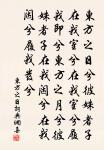 東方之日兮彼
姝者子在我室
兮在我室兮履
我即兮東方之
月兮彼姝者子
在我闥兮在我
闥兮履我發兮
東方之日